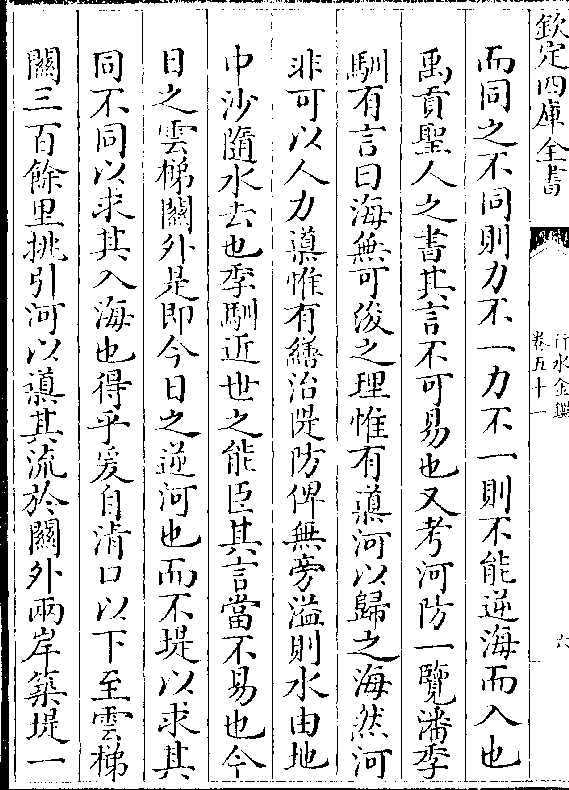 欽定四庫全書
行水金鑑
卷五十一
六
而同之不同則力不一力不一則不能逆海而入也
禹貢聖人之書其言不可易也又考河防一覽潘季
馴有言曰海無可浚之理惟有導河以歸之海然河
非可以人力導惟有繕治隄防俾無旁溢則水由地
中沙隨水去也季馴近世之能臣其言當不易也今
日之雲梯關外是即今日之逆河也而不堤以求其
同不同以求其入海也得乎爰自清口以下至雲梯
關三百餘里挑引河以導其流於關外兩岸築堤一